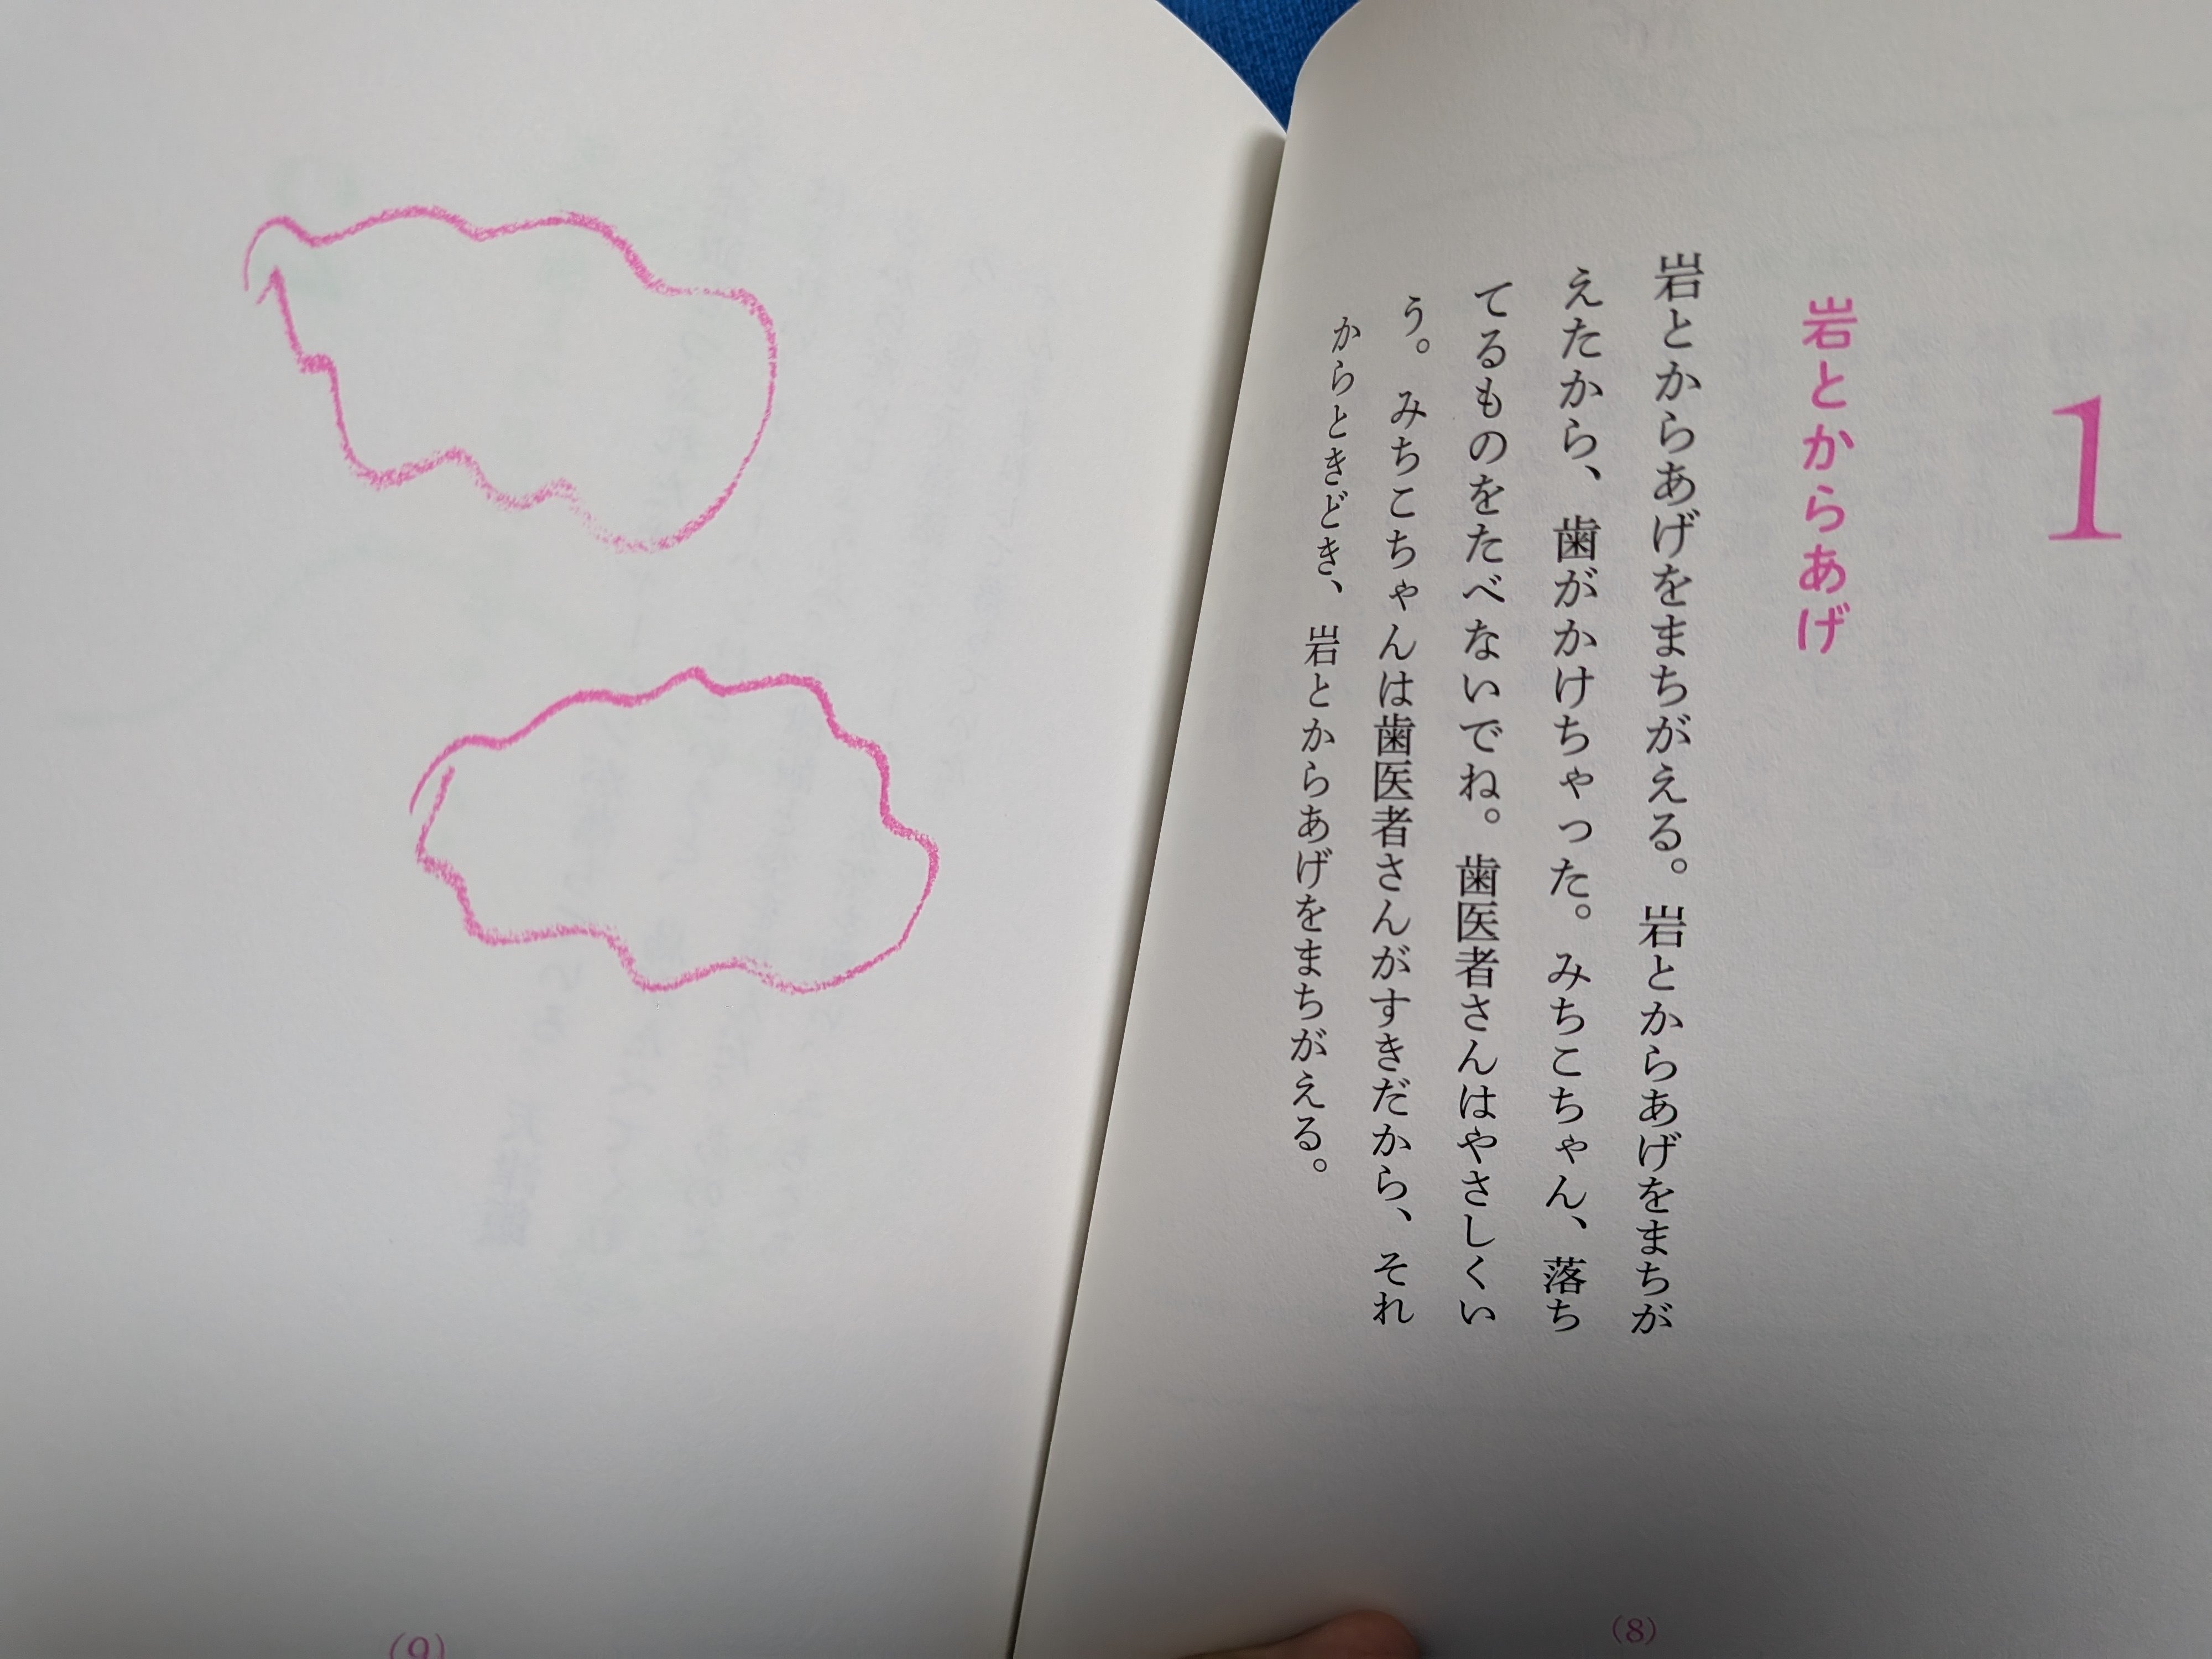 1
岩とからあげ
岩とからあげをまちがえる。岩とからあげをまちが
えたから、歯がかけちゃった。みちこちゃん、落ち
てるものをたべないでね。歯医者さんはやさしくい
う。みちこちゃんは歯医者さんがすきだから、それ
からときどき、岩とからあげをまちがえる。
(8)
(9)